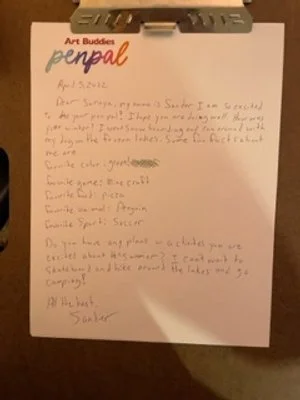 Art Buddies
penpal
April 3, 2022
Dear Soraya, my name is Sander I am so excited
to be your pen pal! I hope you are doing well. How was
your winter? I went snowboarding and ran around with
my dog on the frozen lakes. Some fun facts about
me are
favorite color: green!
favorite game: Minecraft
favorite food: pizza
favorite animal: Penguin
favorite Sport: Soccer
Do you have any plans or activites you are
excited about this summer? I can't wait to
skateboard and bike around the lakes and go
camping!
All the best,
Sander